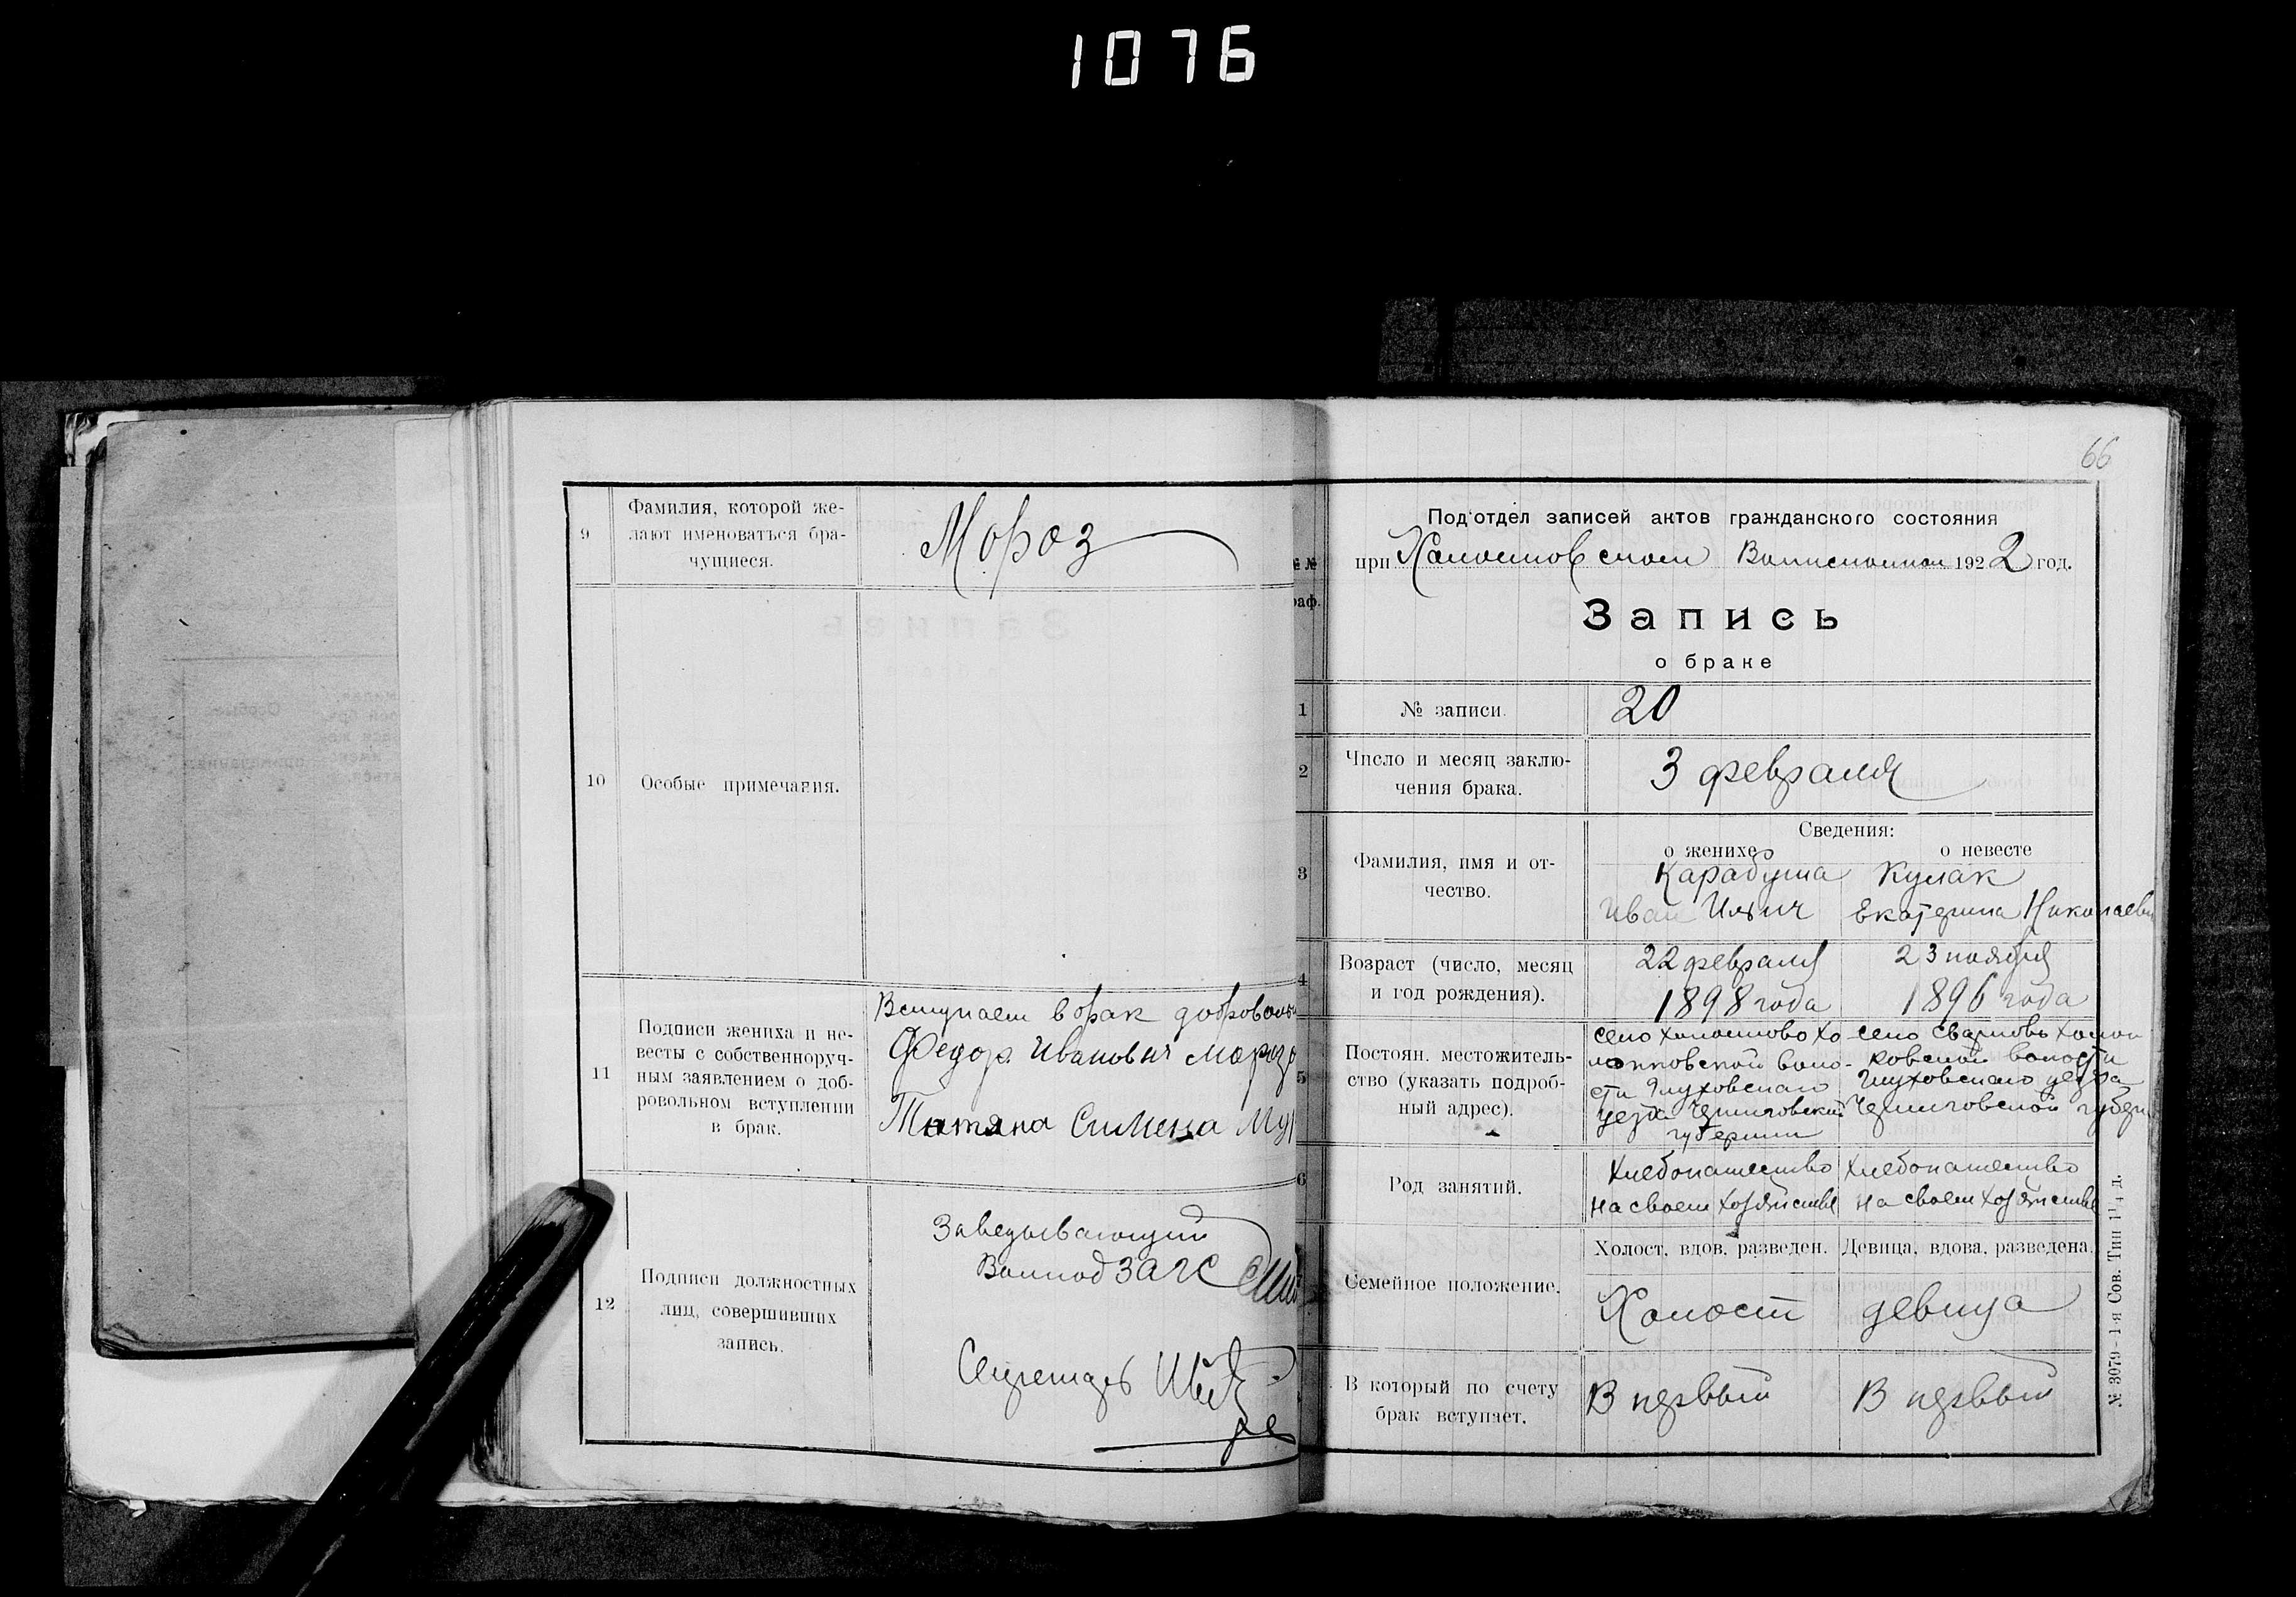 1076
9
Фамилия, которой же-
лают именоваться бра-
чущиеся.
Мороз
10
Особые примечания.
11
Подписи жениха и не-
весты с собственноруч-
ным заявлением о доб-
ровольном вступлении
в брак.
Вступаем в брак добровольн
Федор Иванович Мороз
Татяна Симена
12
Подписи должностных
лиц, совершивших
запись.
Заведывающий
Волподзагс
Секретарь
66
Под'отдел записей актов гражданского состояния
при Холопковском Волисполкоме 1922 год.
Запись
о браке
№ №
раф.
1
№ записи.
20
2
Число и месяц заклю-
чения брака.
3 февраля
3
Фамилия, имя и от-
чество.
Сведения:
о женихе
о невесте
Карабута
Иван Ильич
Кулак
Екатерина Николаевн
4
Возраст (число, месяц
и год рождения).
22 февраля
1898 года
23 ноября
1896 года
5
Постоян. местожитель-
ство (указать подроб-
ный адрес).
село Холопково Хо
лопковской воло-
сти Глуховского
уезда Черниговской
губернии
село Сварковь Холоп
ковской волости
Глуховского уезда
Черниговской губерн
6
Род занятий.
Хлебопашество
на своем хозяйстве
Хлебопашество
на своем хозяйстве
Семейное положение.
Холост, вдов, разведен.
Девица, вдова, разведена.
Холост
девица
В который по счету
брак вступает.
В первый
В первый
№ 3079 - 1-я Сов. Тип